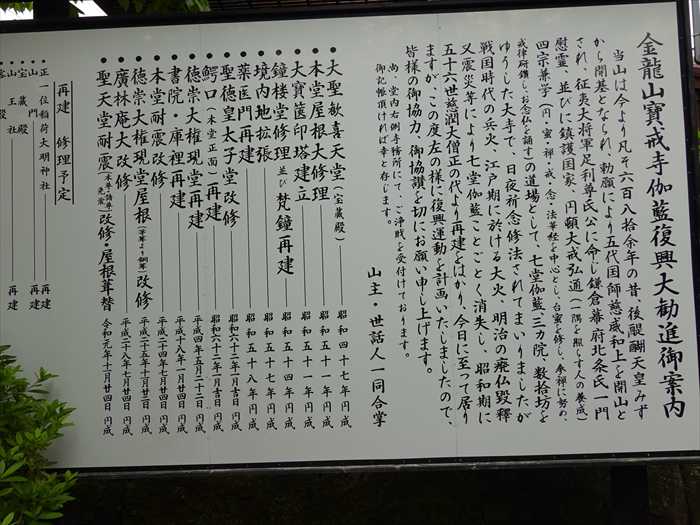 金龍山寶戒寺伽藍復興大勧進御案内
当山は今より凡そ六百八拾余年の昔、後醍醐天皇みず
から開基となられ、勅願により五代国師慈威和上を開山と
され、征夷大将軍足利尊氏公に命じ鎌倉幕府北条氏一門
慰霊、並びに鎮護国家、円頓大戒弘通(一隅を照らす人の養成)
四宗兼学(円・密・禅・戒・念・法華経を中心とし、台密を修し、参禅に努め、
戒律研鑽し、お念仏を誦す)の道場として、七堂伽藍・三カ院、数拾坊を
ゆうした大寺で、日夜祈念修法されてまいりましたが
戦国時代の兵火、江戸期に於ける大火、明治の廃仏毀釋
又震災等により七堂伽藍ことごとく消失し、昭和期に
五十六世慈潤大僧正の代より再建をはかり、今日に至って居り
ますが、この度左の様に復興運動を計画いたしましたので、
皆様の御協力、御協讃を切にお願い申し上げます。
尚、堂内右側手務所にて、ご浄財を受付けております。
御記帳頂ければ幸と存じます。
山主・世話人一同合掌
●大聖歓喜天堂(宝蔵殿) 昭和四十七年 円成
●本堂屋根大修理 昭和五十一年 円成
●大寶篋印塔建立 昭和五十一年 円成
●鐘楼堂修理並び梵鐘再建 昭和五十四年 円成
●境内地拡張 昭和五十七年 円成
●薬医門再建 昭和五十八年 円成
●聖徳皇太子堂改修 昭和六十二年一月吉日 円成
●鰐口(本堂正面)再建 昭和六十二年一月吉日 円成
●徳崇大権現堂再建 平成四年五月二十二日 円成
●書院・庫裡再建 平成十八年一月廿四日 円成
●本堂耐震改修 平成二十四年七月廿四日 円成
●徳崇大権現堂屋根(茅葺より銅葺)改修 平成二十五年十月廿二日 円成
●廣林庵大改修 平成二十八年七月廿四日 円成
●聖天堂耐震改修・屋根葺替 令和元年十一月廿四日 円成
再建 修理予定
正一位稲荷大明神社 再建
山門 再建
宝蔵殿 再建
山王社 再建